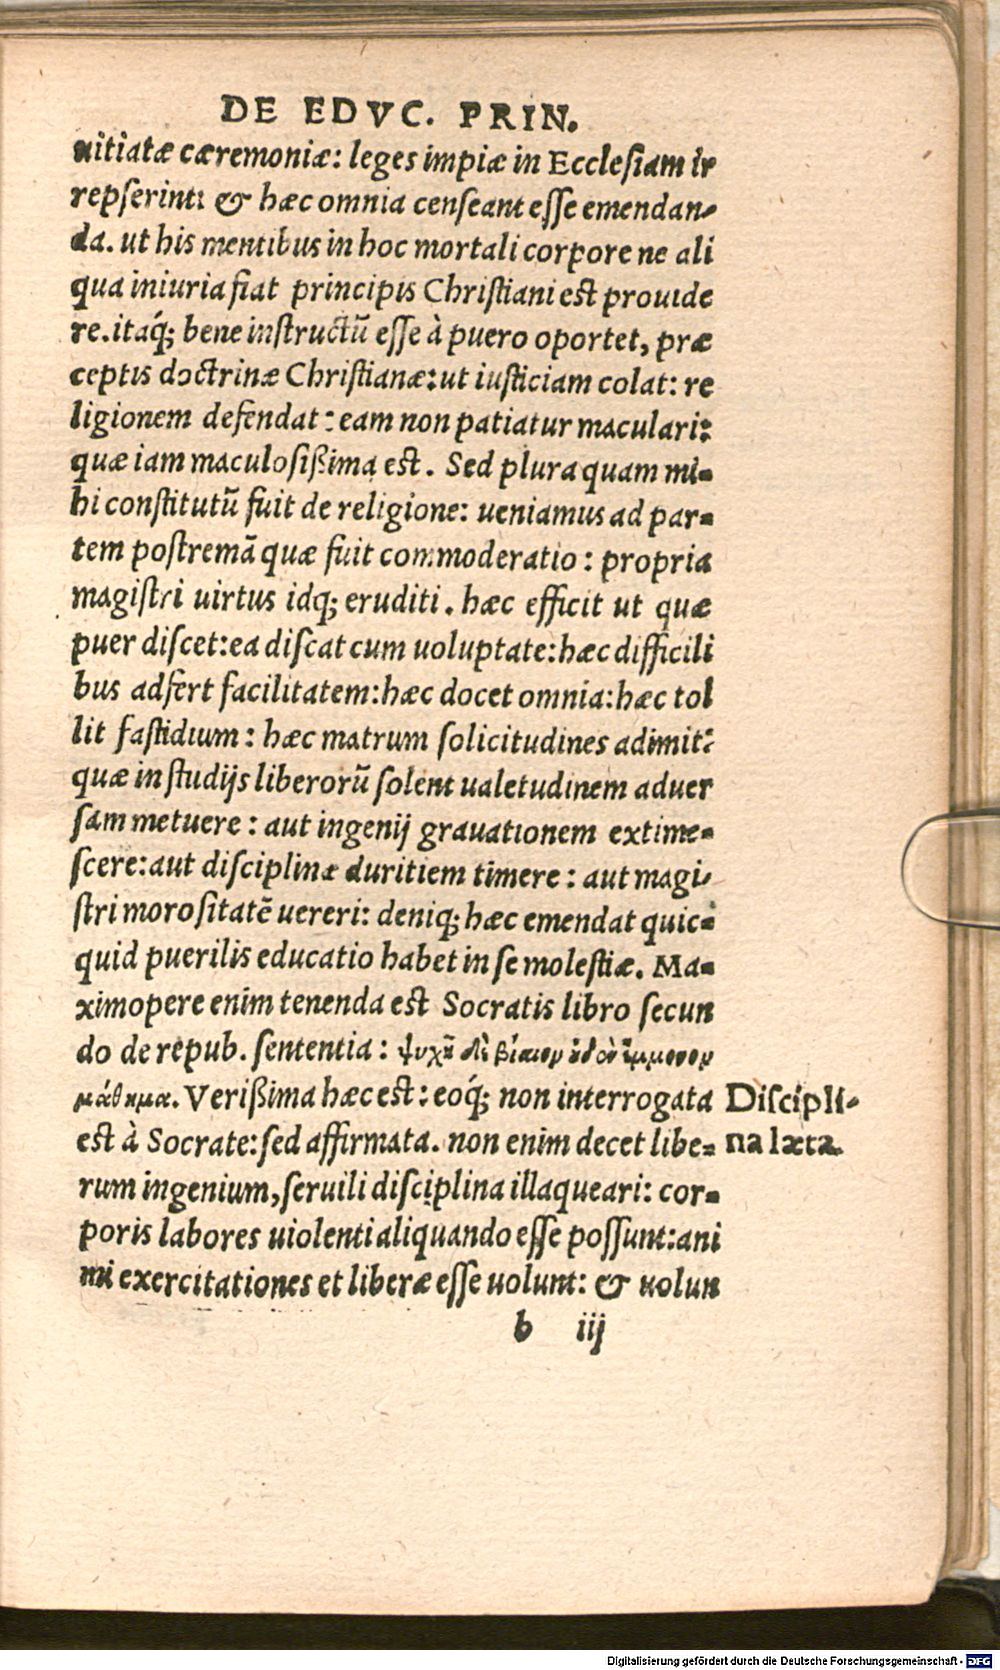 DE EDVC. PRIN.
uitiatæ cæremoniæ: leges impiæ in Ecclesiam ir
repserint: & hæc omnia censeant esse emendan-
da. ut his mentibus in hoc mortali corpore ne ali
qua iniuria fiat principis Christiani est prouide
re. itaq́; bene instructũ esse à puero oportet, præ
ceptis doctrinæ Christianæ: ut iusticiam colat: re
ligionem defendat: eam non patiatur maculari:
quæ iam maculosißima est. Sed plura quam mi-
hi constitutũ fuit de religione: ueniamus ad par-
tem postremã quæ fuit commoderatio: propria
magistri uirtus idq; eruditi. hæc efficit ut quæ
puer discet: ea discat cum uoluptate: hæc difficili
bus adfert facilitatem: hæc docet omnia: hæc tol
lit fastidium: hæc matrum solicitudines adimit:
quæ in studijs liberorũ solent ualetudinem aduer
sam metuere: aut ingenij grauationem extime-
scere: aut disciplinæ duritiem timere: aut magi-
stri morositatẽ uereri: deniq; hæc emendat quic-
quid puerilis educatio habet in se molestiæ. Ma-
ximopere enim tenenda est Socratis libro secun
do de repub. sententia: ψυχῆ δὲ βίαιον ἐδὲν ἔμμονον
μάθημα. Verißima hæc est: eoq́; non interrogata
est à Socrate: sed affirmata. non enim decet libe-
rum ingenium, seruili disciplina illaqueari: cor-
poris labores uiolenti aliquando esse possunt: ani
mi exercitationes et liberæ esse uolunt: & uolun
Discipli-
na læta.
b iij
Digitalisierung gefördert durch die Deutsche Forschungsgemeinschaft - DFG